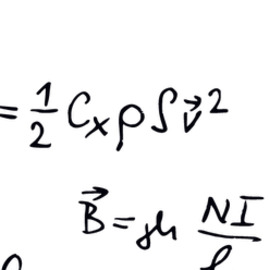 = 1/2 Cₓ ρ S v⃗²
B⃗ = μ NI/ℓ